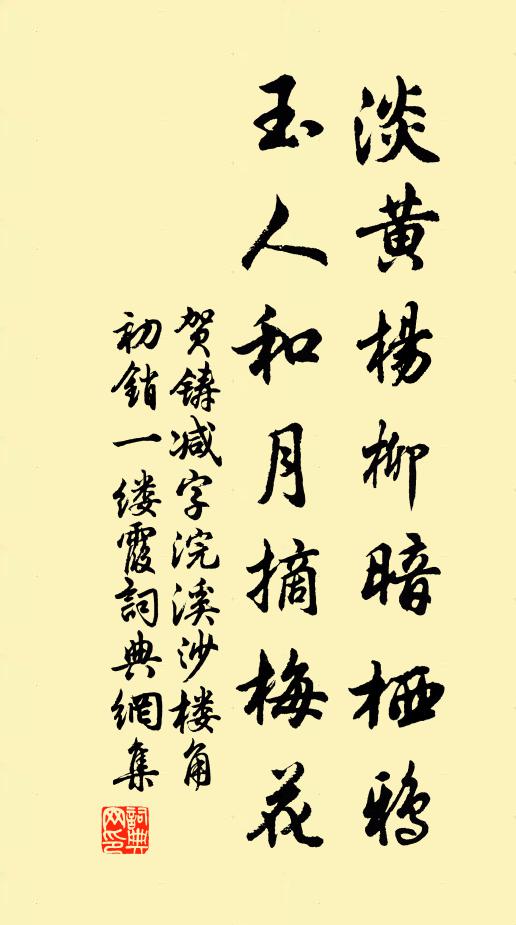 淡黄楊柳暗栖鸦
玉人和月摘梅花
贺铸减字浣溪沙楼角
初銷一缕霞詞典網集
詞典
网印